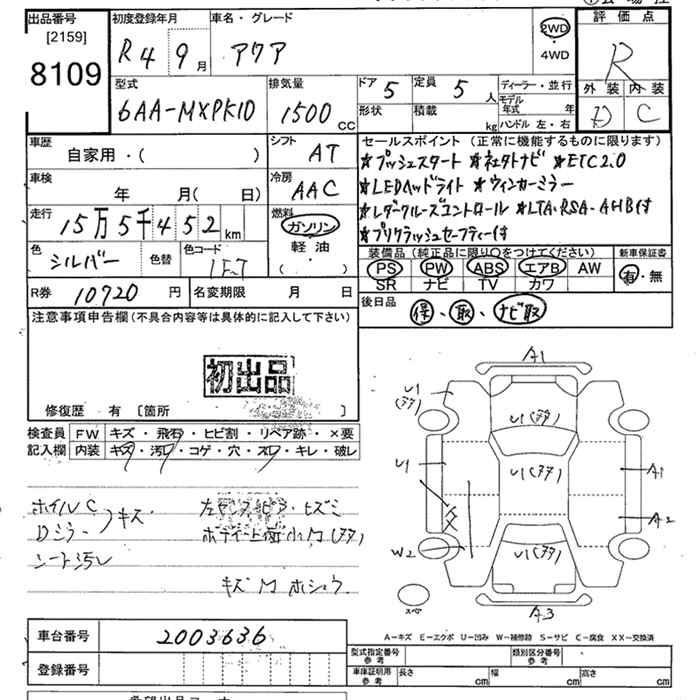 出品番号 初度登録年月 車名・グレード 評価点
[2159]
8109 R4 9月 アクア 2WD・4WD R
型式 排気量 ドア 5 定員 5人 ディーラー・並行 外装 内装
6AA-MXPK10 1500cc 形状 積載 kg モデル年式 年 D C
ハンドル 左・右
車歴 シフト セールスポイント (正常に機能するものに限ります)
自家用・( ) AT ★プッシュスタート ★ネクタナビ ★ETC2.0
車検 冷房 ★LEDヘッドライト ★ウィンカーミラー
年 月( 日) AAC ★レダクルーズコントロール ★LTA・RSA・AHB付
走行 燃料 ★プリクラッシュセーフティー付
15万5千452km ガソリン
色 色替 色コード 軽油 装備品(純正品に限り○をつけてください) 新車保証書
シルバー 1F7 ・( ) PS PW ABS エアB AW 有・無
SR ナビ TV カワ
R券 10720円 名変期限 月 日 後日品
注意事項申告欄(不具合内容等は具体的に記入して下さい) 保・取・ナビ取
初出品
修復歴 有 [箇所 ]
検査員 FW キズ・飛石・ヒビ割・リペア跡・×要
記入欄 内装 キズ・汚レ・コゲ・穴・スレ・キレ・破レ
ホイルC
Dミラー キズ
シート汚レ
ボデー上面小凹(多タ)
キズ 凹 ホシュウ
A1
U1
U1(多タ)
U1
U1(多タ)
A1
XX
A2
W2
U1(多タ)
スペア
A3
A-キズ E-エクボ U-凹み W-補修跡 S-サビ C-腐食 XX-交換済
車台番号 2003636
型式指定番号 参考 類別区分番号 参考
登録番号 車庫証明用 参考 長さ cm 幅 cm 高さ cm